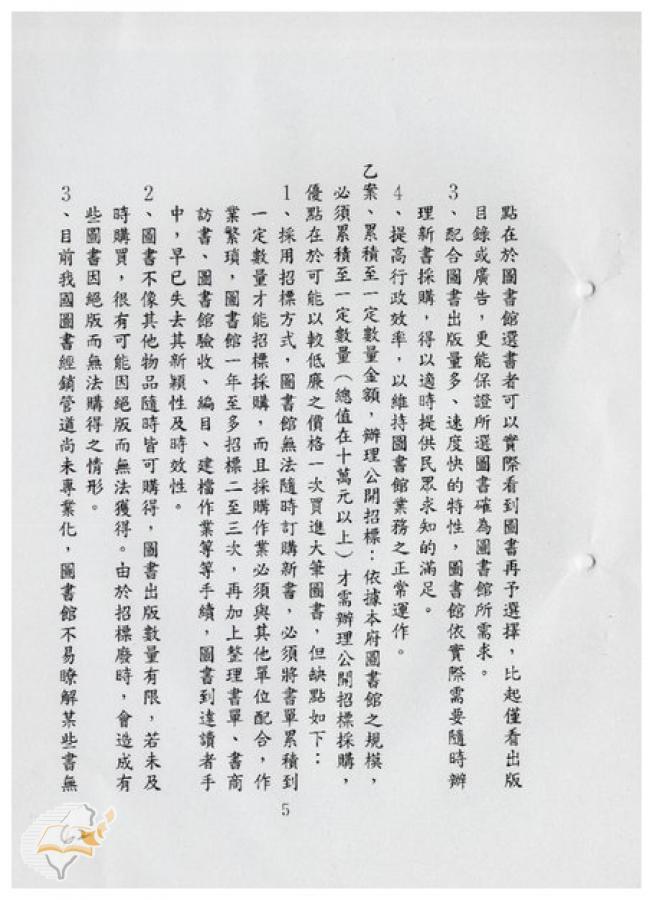 點在於圖書館選書者可以實際看到圖書再予選擇，比起僅看出版
目錄或廣告，更能保證所選圖書確為圖書館所需求。
3、配合圖書出版量多、速度快的特性，圖書館依實際需要隨時辦
理新書採購，得以適時提供民眾求知的滿足。
4、提高行政效率，以維持圖書館業務之正常運作。
乙案、累積至一定數量金額，辦理公開招標：依據本府圖書館之規模，
必須累積至一定數量（總值在十萬元以上）才需辦理公開招標採購，
優點在於可能以較低廉之價格一次買進大筆圖書，但缺點如下：
1、採用招標方式，圖書館無法隨時訂購新書，必須將書單累積到
一定數量才能招標採購，而且採購作業必須與其他單位配合，作
業繁瑣，圖書館一年至多招標二至三次，再加上整理書單、書商
訪書、圖書館驗收、編目、建檔作業等等手續，圖書到達讀者手
中，早已失去其新穎性及時效性。
2、圖書不像其他物品隨時皆可購得，圖書出版數量有限，若未及
時購買，很有可能因絕版而無法獲得。由於招標廢時，會造成有
些圖書因絕版而無法購得之情形。
3、目前我國圖書經銷管道尚未專業化，圖書館不易瞭解某些書無
5